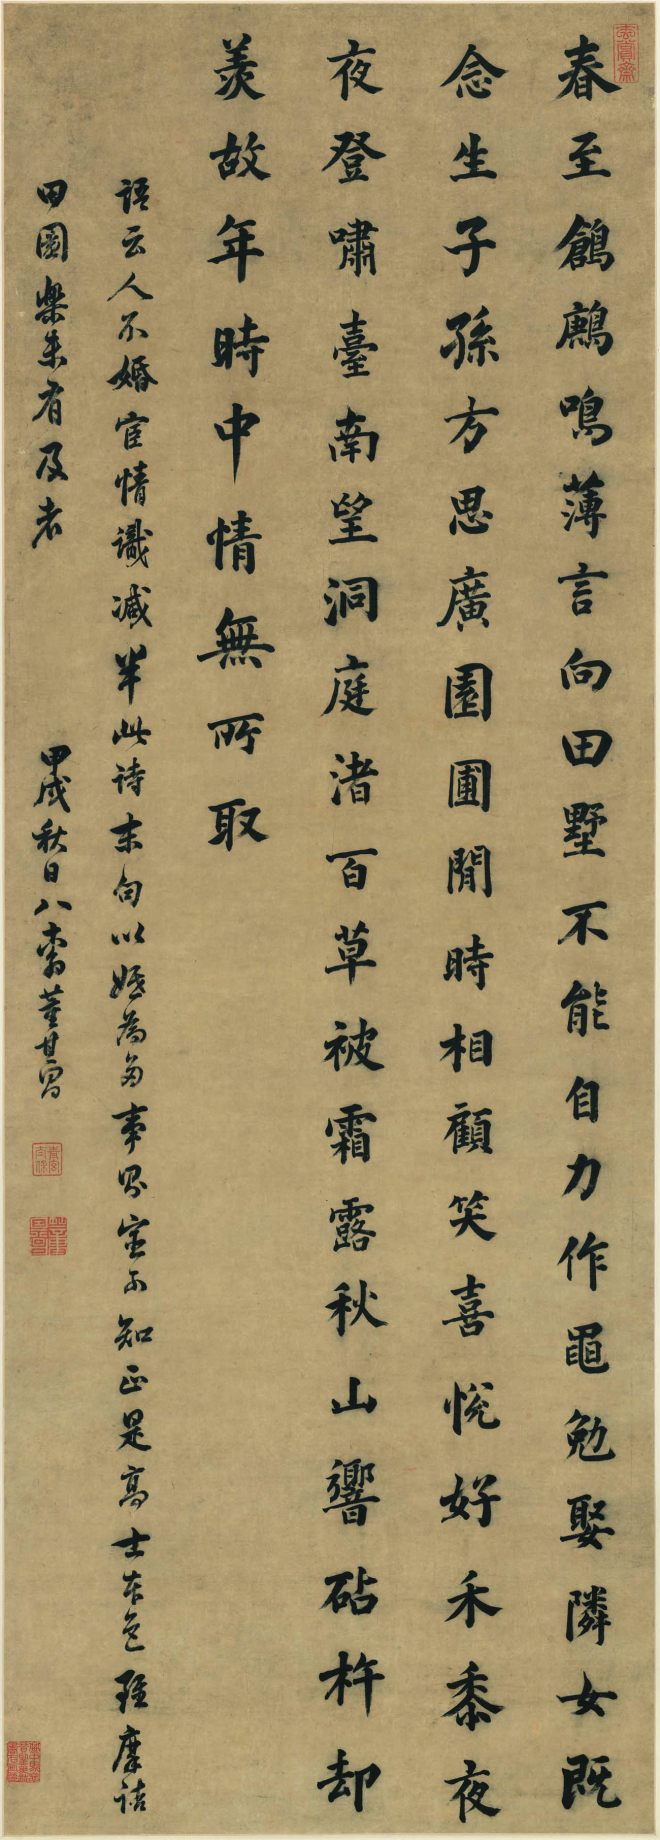 玄賞齋
春至鶬鶊鳴薄言向田墅不能自力作黽勉娶隣女既
念生子孫方思廣園圃閒時相顧笑喜悅好禾黍夜
夜登嘯臺南望洞庭渚百草被霜露秋山響砧杵却
羨故年時中情無所取
語云人不婚宦情識减半此詩末句以婚為多事則宦可知正是高士本色雖摩詰
田園樂未有及者 甲戌秋日八十翁董其昌
青宮太保